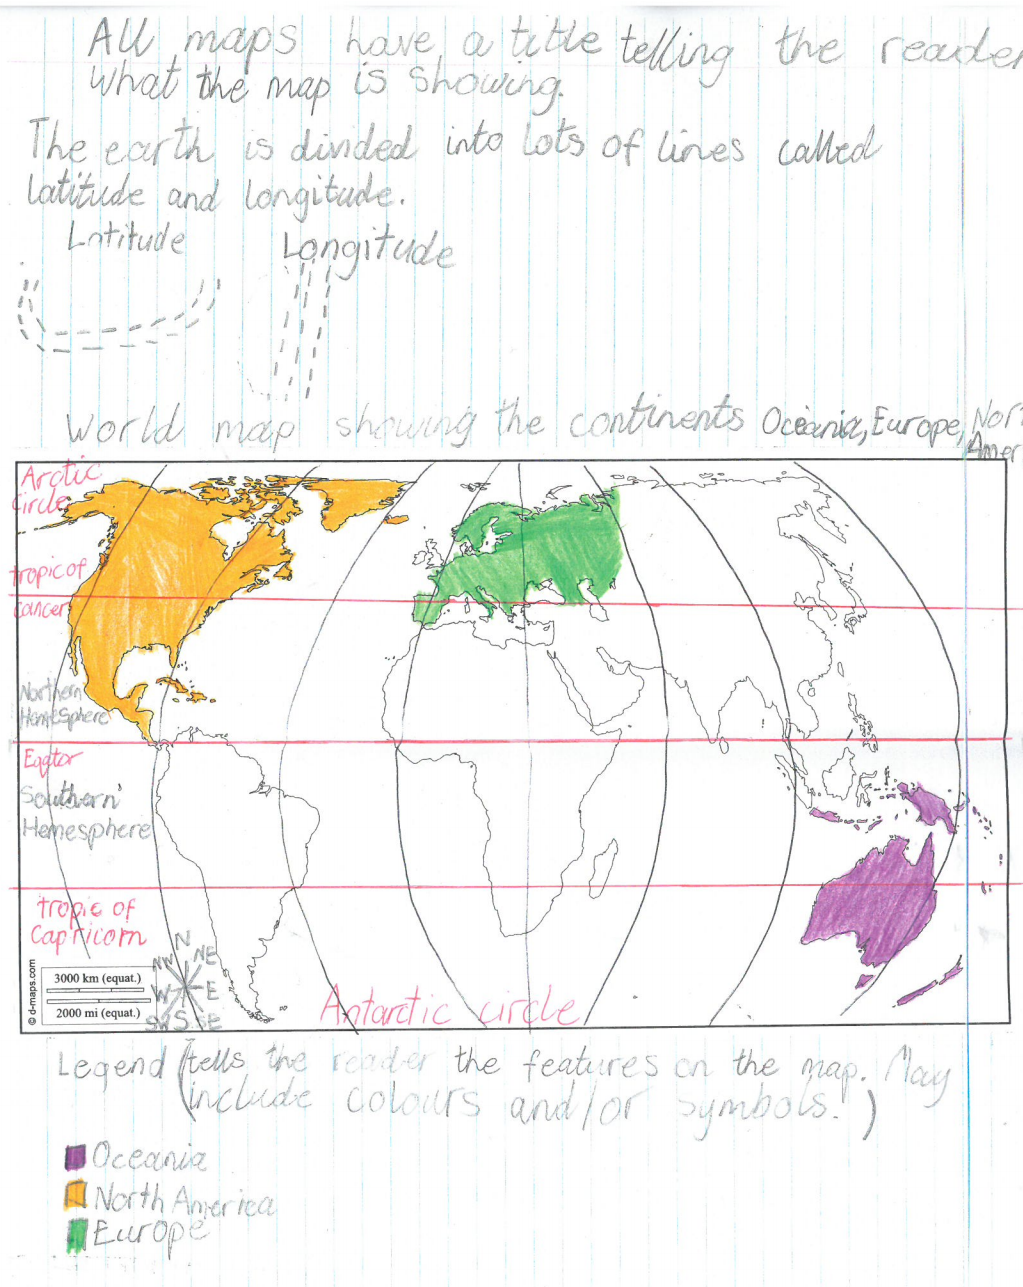 All maps have a title telling the reader
what the map is showing.
The earth is divided into lots of lines called
latitude and longitude.
Latitude Longitude
World map showing the continents Oceania, Europe, Nor
Amer
Arctic
circle
tropic of
cancer
Northern
Hemesphere
Eqator
Southern
Hemesphere
tropic of
Capricorn
N
NW NE
W E
SW S SE
3000 km (equat.)
2000 mi (equat.)
© d-maps.com
Antarctic circle
Legend (tells the reader the features on the map. May
include colours and/or symbols.)
Oceania
North America
Europe